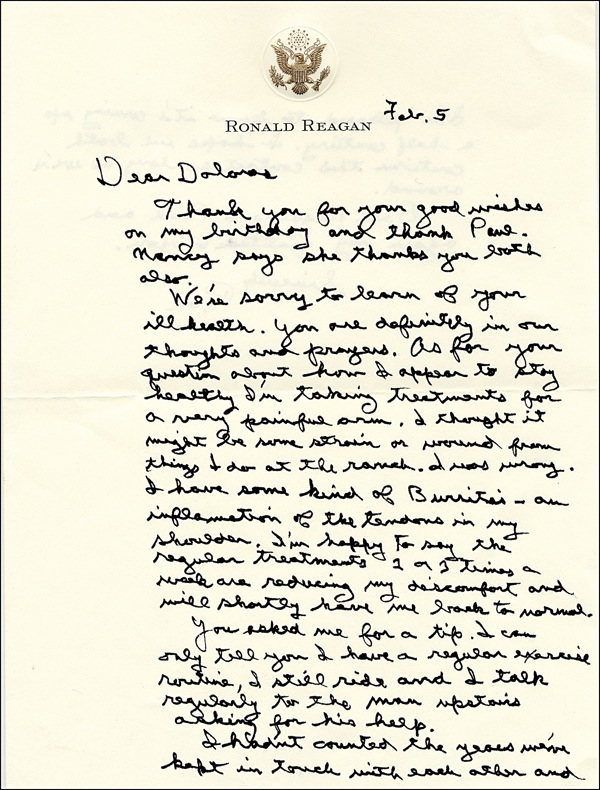 RONALD REAGAN
Feb. 5
Dear Dolores
Thank you for your good wishes
on my birthday and thank Paul.
Nancy says she thanks you both
also.
We're sorry to learn of your
ill health. You are definitely in our
thoughts and prayers. As for your
question about how I appear to stay
healthy I'm taking treatments for
a very painful arm. I thought it
might be some strain or wound from
things I do at the ranch. I was wrong.
I have some kind of Burritis - an
inflamation of the tendons in my
shoulder. I'm happy to say the
regular treatments 2 or 3 times a
week are reducing my discomfort and
will shortly have me back to normal.
You asked me for a tip. I can
only tell you I have a regular exercise
routine, I still ride and I talk
regularly to the man upstairs
asking for his help.
I hadn't counted the years we've
kept in touch with each other and